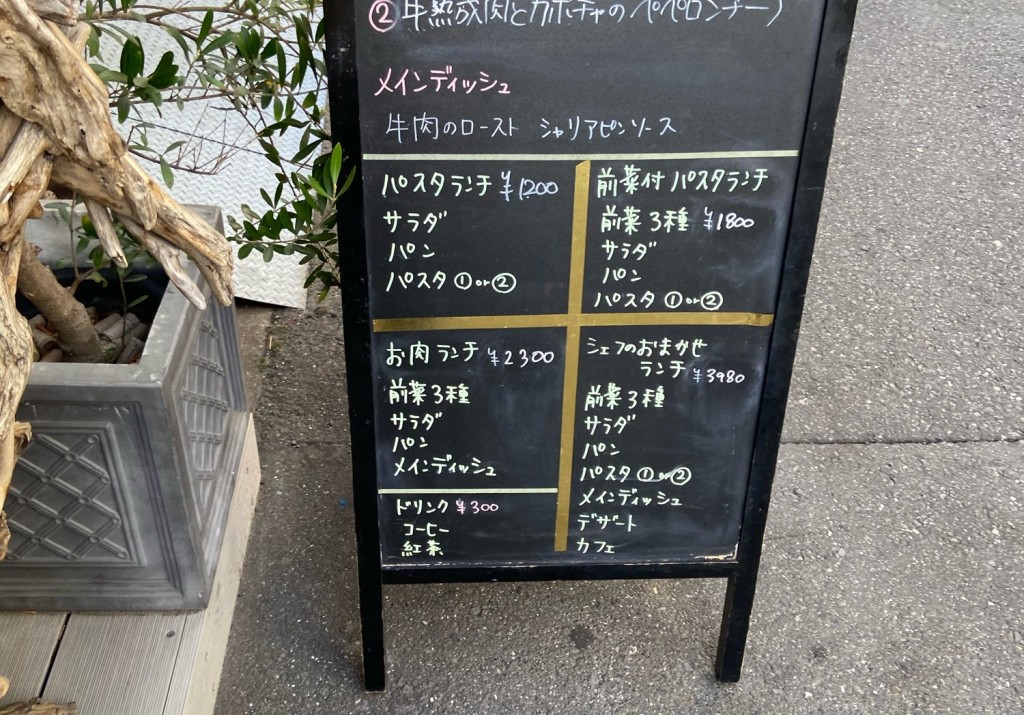 ②牛熟成肉とカボチャのペペロンチーノ
メインディッシュ
牛肉のロースト シャリアピンソース
パスタランチ ¥1200
サラダ
パン
パスタ①or②
前菜付パスタランチ
前菜3種 ¥1800
サラダ
パン
パスタ①or②
お肉ランチ ¥2300
前菜3種
サラダ
パン
メインディッシュ
ドリンク ¥300
コーヒー
紅茶
シェフのおまかせ
ランチ ¥3980
前菜3種
サラダ
パン
パスタ①or②
メインディッシュ
デザート
カフェ